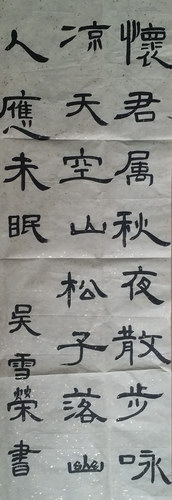 懷君属秋夜散步咏
凉天空山松子落幽
人應未眠
吴雪榮書